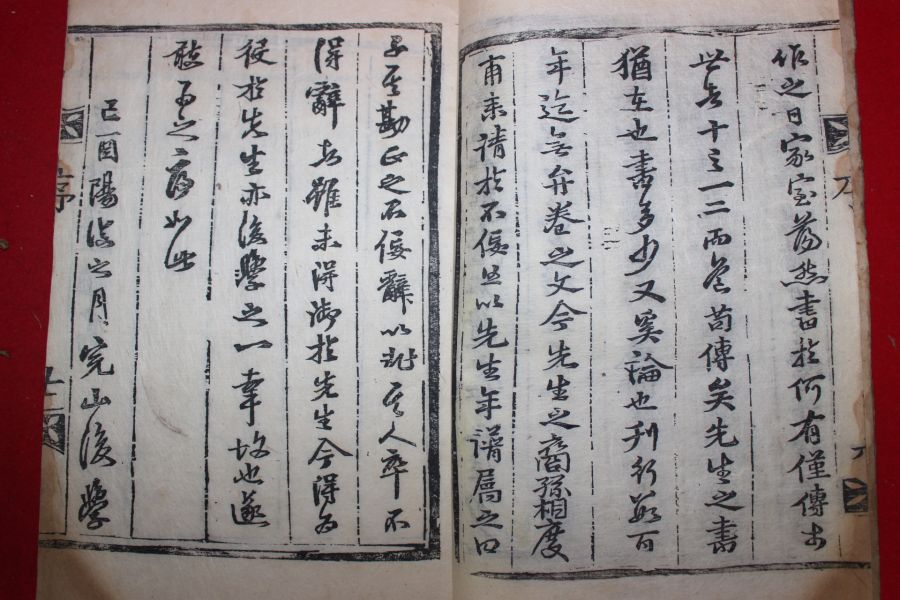 作之日家室蕩然書於何有僅傳出
世者十之一二而茍傳矣先生之書
猶在也書多少又奚論也刊行數百
年迄無弁卷之文今先生之裔孫相度
甫來請於不佞且以先生年譜屬之曰
子其勘正之不佞辭以非其人卒不
得辭者雖未得御於先生今得爲
役於先生亦後學之一幸故也遂
敢書之爲如此
己酉陽復之月完山後學
序